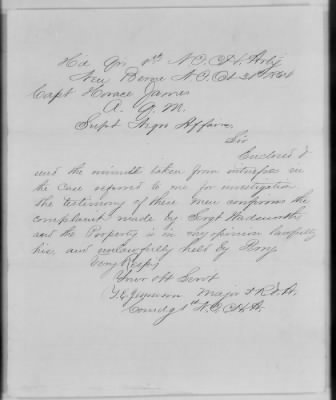 Hd Qrs 1st N.C. H. Arty
New Berne N.C. Oct 21st
Capt Horace James
A. Q. M.
Supt Negro Affairs
Sir
Enclosed I
send the minutes taken from witnesses in
the Case referred to me for investigation
the testimony of these men confirms the
complaint made by Sergt
and the Property is in my opinion lawfully
his, and unlawfully held by
Very Respy
Your obt Servt
Major
Comdg 1st N.C. H. A.